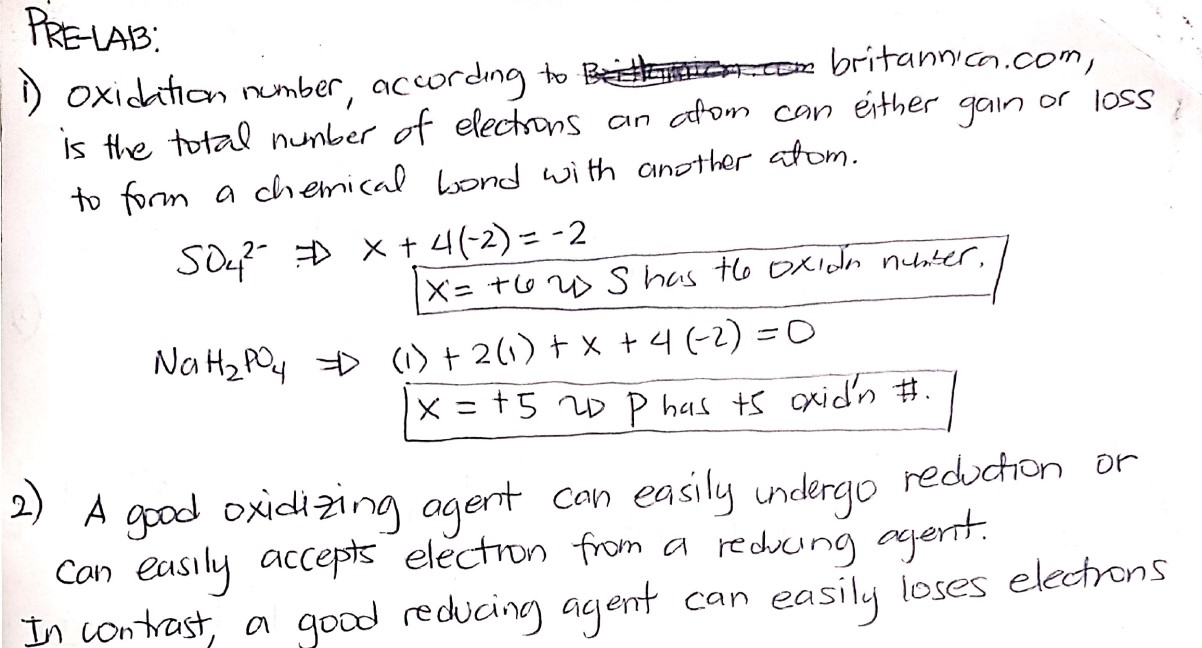 PRE-LAB:
1) oxidation number, according to britannica.com,
is the total number of electrons an atom can either gain or loss
to form a chemical bond with another atom.
SO₄²⁻ ⇒ x + 4(-2) = -2
x = +6 ⇝ S has +6 oxid'n number.
NaH₂PO₄ ⇒ (1) + 2(1) + x + 4(-2) = 0
x = +5 ⇝ P has +5 oxid'n #.
2) A good oxidizing agent can easily undergo reduction or
can easily accepts electron from a reducing agent.
In contrast, a good reducing agent can easily loses electrons